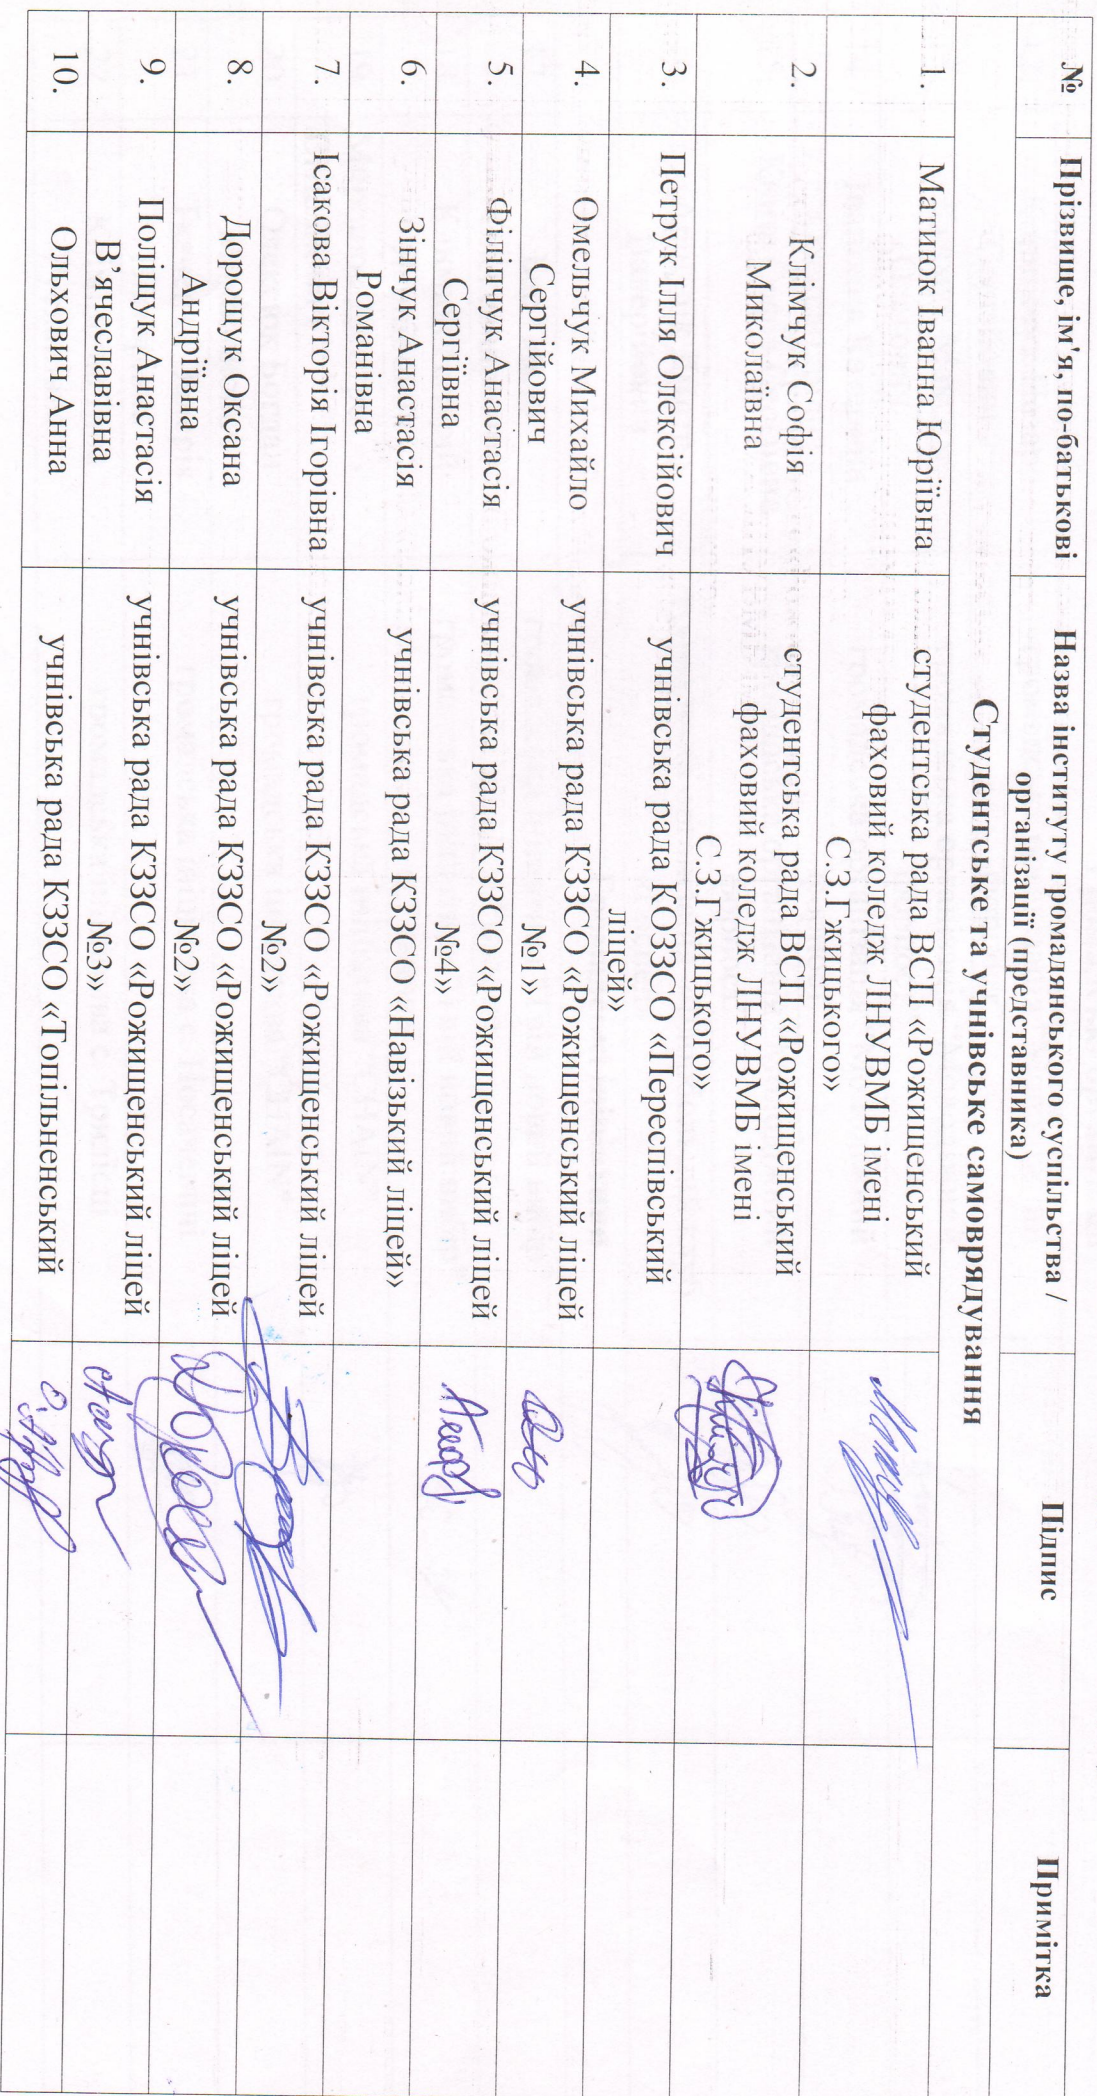 №
Прізвище, ім'я, по-батькові
Назва інституту громадянського суспільства /
організації (представника)
Підпис
Примітка
Студентське та учнівське самоврядування
1.
Матиюк Іванна Юріївна
студентська рада ВСП «Рожищенський
фаховий коледж ЛНУВМБ імені
С.З.Гжицького»
2.
Клімчук Софія
Миколаївна
студентська рада ВСП «Рожищенський
фаховий коледж ЛНУВМБ імені
С.З.Гжицького»
3.
Петрук Ілля Олексійович
учнівська рада КОЗЗСО «Переспівський
ліцей»
4.
Омельчук Михайло
Сергійович
учнівська рада КЗЗСО «Рожищенський ліцей
№1»
5.
Філіпчук Анастасія
Сергіївна
учнівська рада КЗЗСО «Рожищенський ліцей
№4»
6.
Зінчук Анастасія
Романівна
учнівська рада КЗЗСО «Навізький ліцей»
7.
Ісакова Вікторія Ігорівна
учнівська рада КЗЗСО «Рожищенський ліцей
№2»
8.
Дорощук Оксана
Андріївна
учнівська рада КЗЗСО «Рожищенський ліцей
№2»
9.
Поліщук Анастасія
В’ячеславівна
учнівська рада КЗЗСО «Рожищенський ліцей
№3»
10.
Ольхович Анна
учнівська рада КЗЗСО «Топільненський